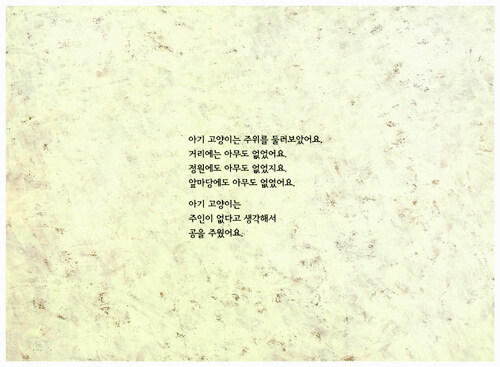 아기 고양이는 주위를 둘러보았어요.
거리에는 아무도 없었어요.
정원에도 아무도 없었지요.
앞마당에도 아무도 없었어요.
아기 고양이는
주인이 없다고 생각해서
공을 주웠어요.